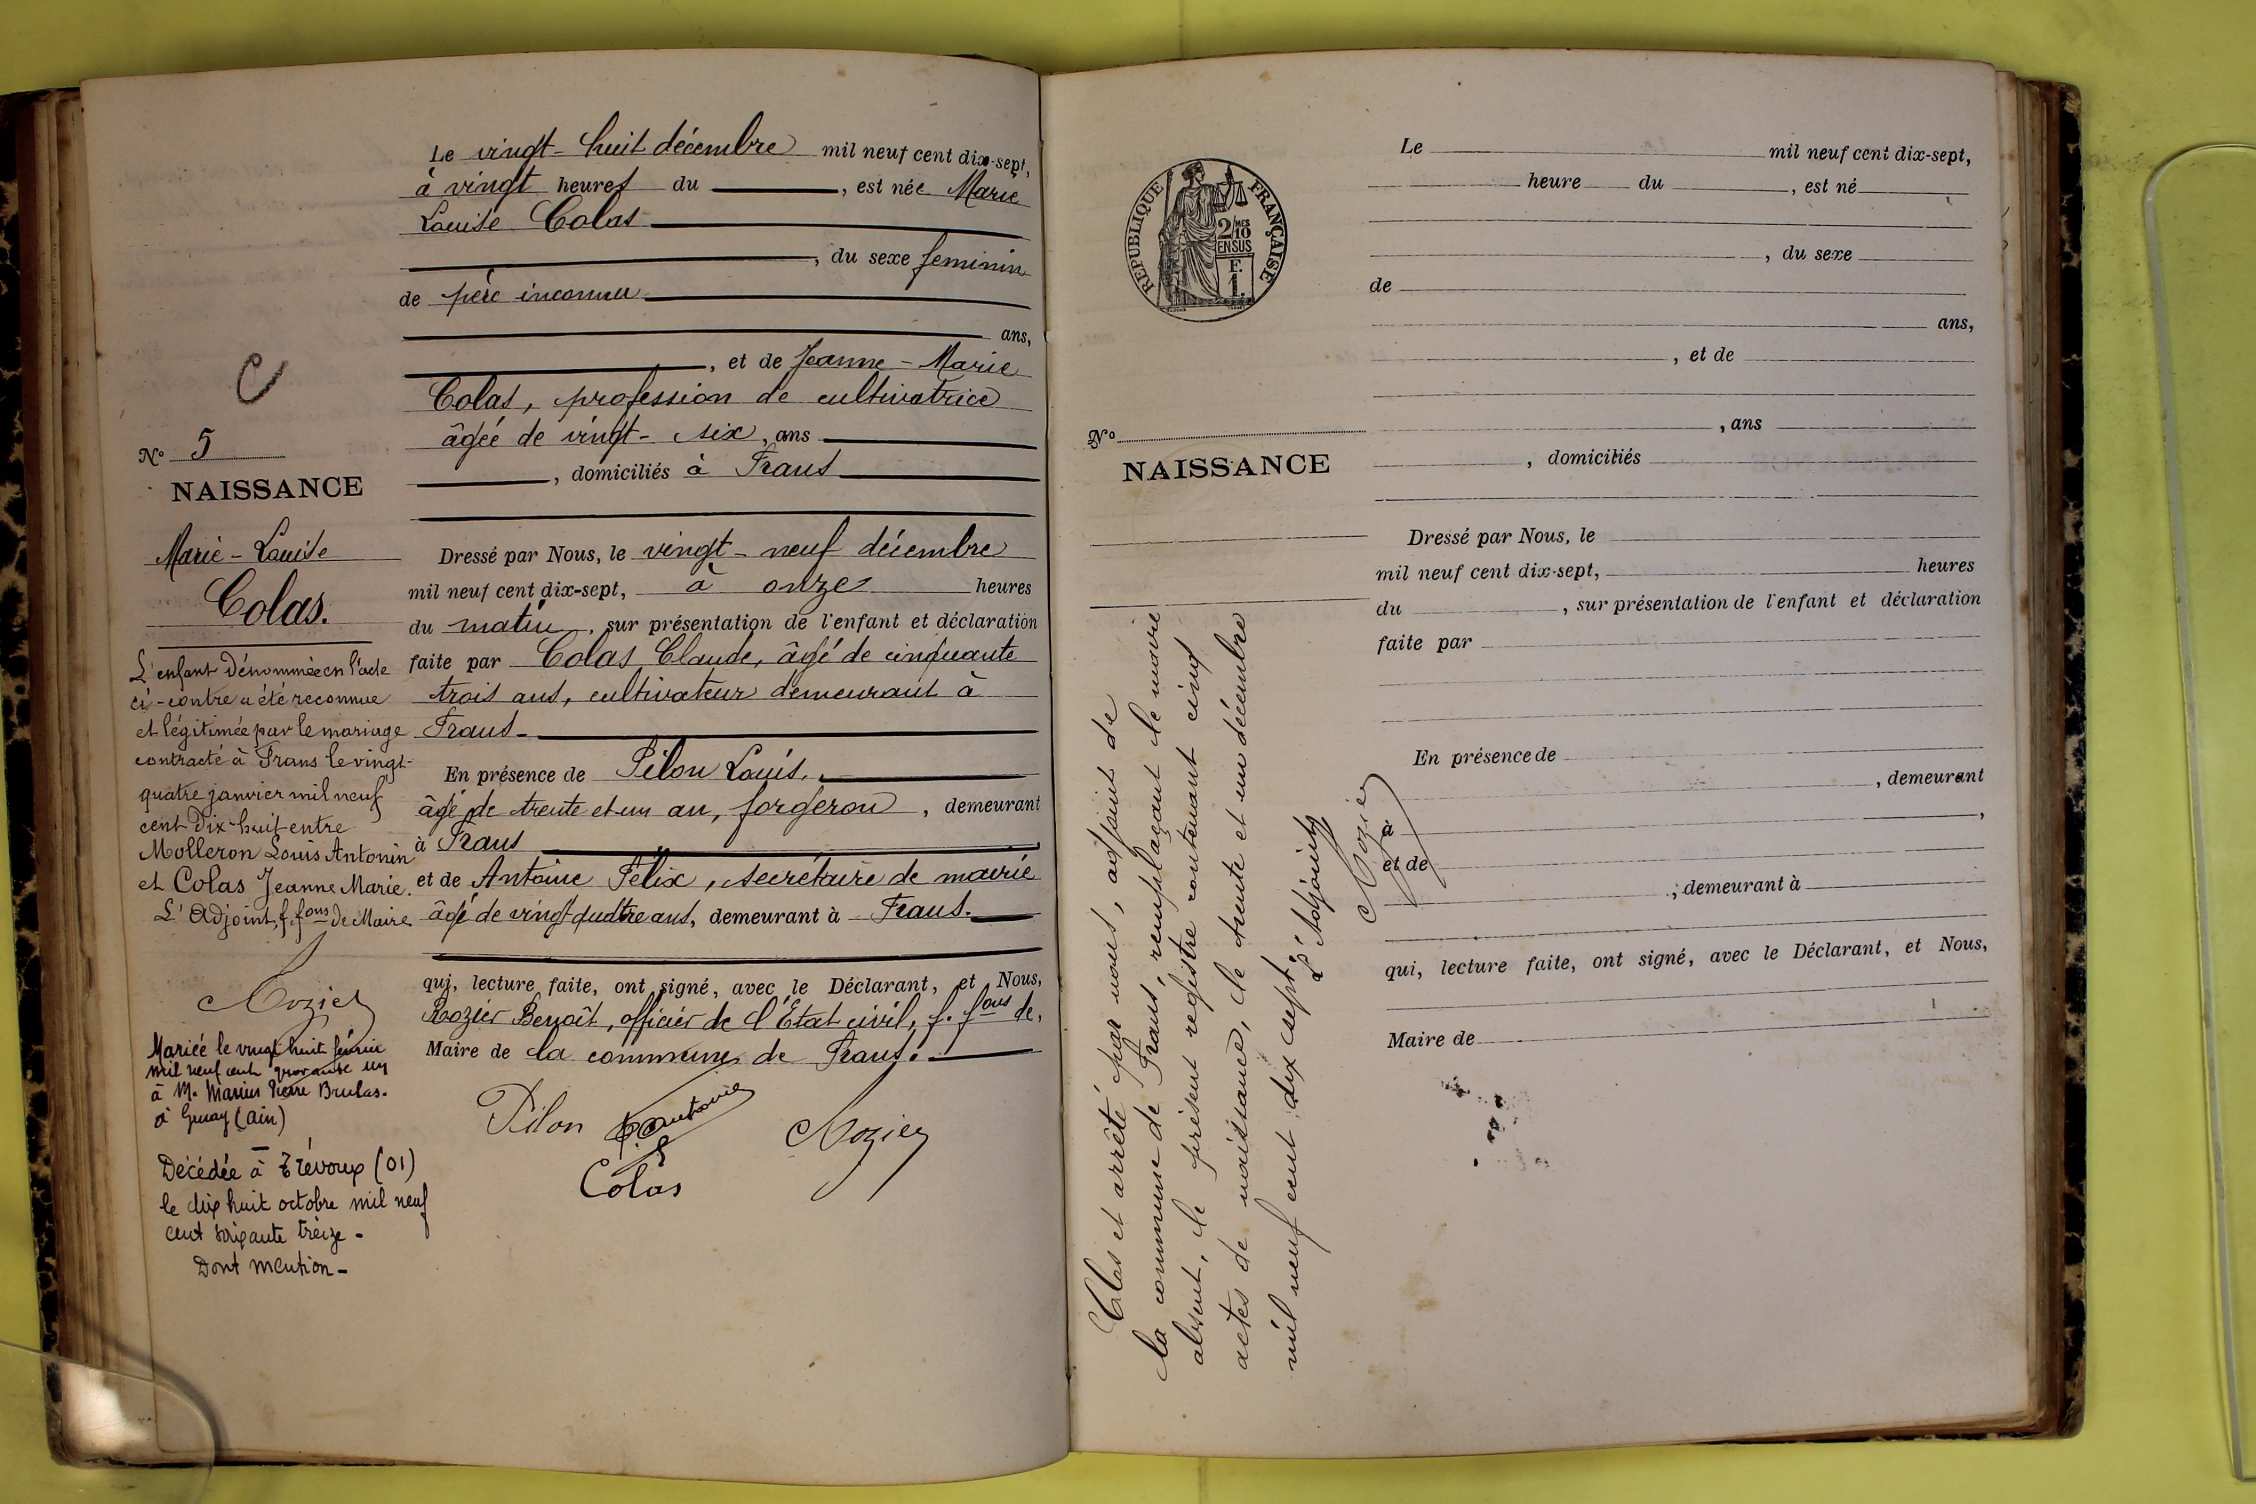 C
N° 5
NAISSANCE
Marie-Louise
Colas.
L'enfant dénommée en l'acte
ci-contre a été reconnue
et légitimée par le mariage
contracté à Frans le vingt-
quatre janvier mil neuf
cent dix-huit entre
Molleron Louis Antonin
et Colas Jeanne Marie.
L'Adjoint, f.fons de Maire
Rozier
Mariée le vingt huit février
mil neuf cent quarante un
à M. Marius Pierre Brulas.
à (Ain)
Décédée à Trévoux (01)
le dix huit octobre mil neuf
cent soixante treize -
Dont mention -
Le vingt-huit décembre mil neuf cent dix-sept,
à vingt heures du , est née Marie
Louise Colas
, du sexe feminin
de père inconnu
ans,
, et de Jeanne-Marie
Colas, profession de cultivatrice
âgée de vingt-six, ans
, domiciliés à Frans
Dressé par Nous, le vingt-neuf décembre
mil neuf cent dix-sept, à onze heures
du matin, sur présentation de l'enfant et déclaration
faite par Colas Claude, âgé de cinquante
trois ans, cultivateur demeurant à
Frans.
En présence de Pilon Louis,
âgé de trente et un an, forgeron, demeurant
à Frans
et de Antoine Félix, secrétaire de mairie
âgé de vingt quatre ans, demeurant à Frans.
qui, lecture faite, ont signé, avec le Déclarant, et Nous,
Rozier Benoît, officier de l'État civil, f. fons de,
Maire de la commune de Frans.
Pilon F. Antoine Rozier
Colas
RÉPUBLIQUE FRANÇAISE
2/10 MES
EN SUS
F.
1.
N°
NAISSANCE
Clos et arrêté par nous, adjoint de
la commune de Frans, remplaçant le maire
absent, le présent registre contenant cinq
actes de naissance, le trente et un décembre
mil neuf cent dix sept.
L'Adjoint,
Rozier
Le mil neuf cent dix-sept,
heure du , est né
, du sexe
de
ans,
, et de
, ans
, domiciliés
Dressé par Nous, le
mil neuf cent dix-sept, heures
du , sur présentation de l'enfant et déclaration
faite par
En présence de
, demeurant
à ,
et de
, demeurant à
qui, lecture faite, ont signé, avec le Déclarant, et Nous,
Maire de